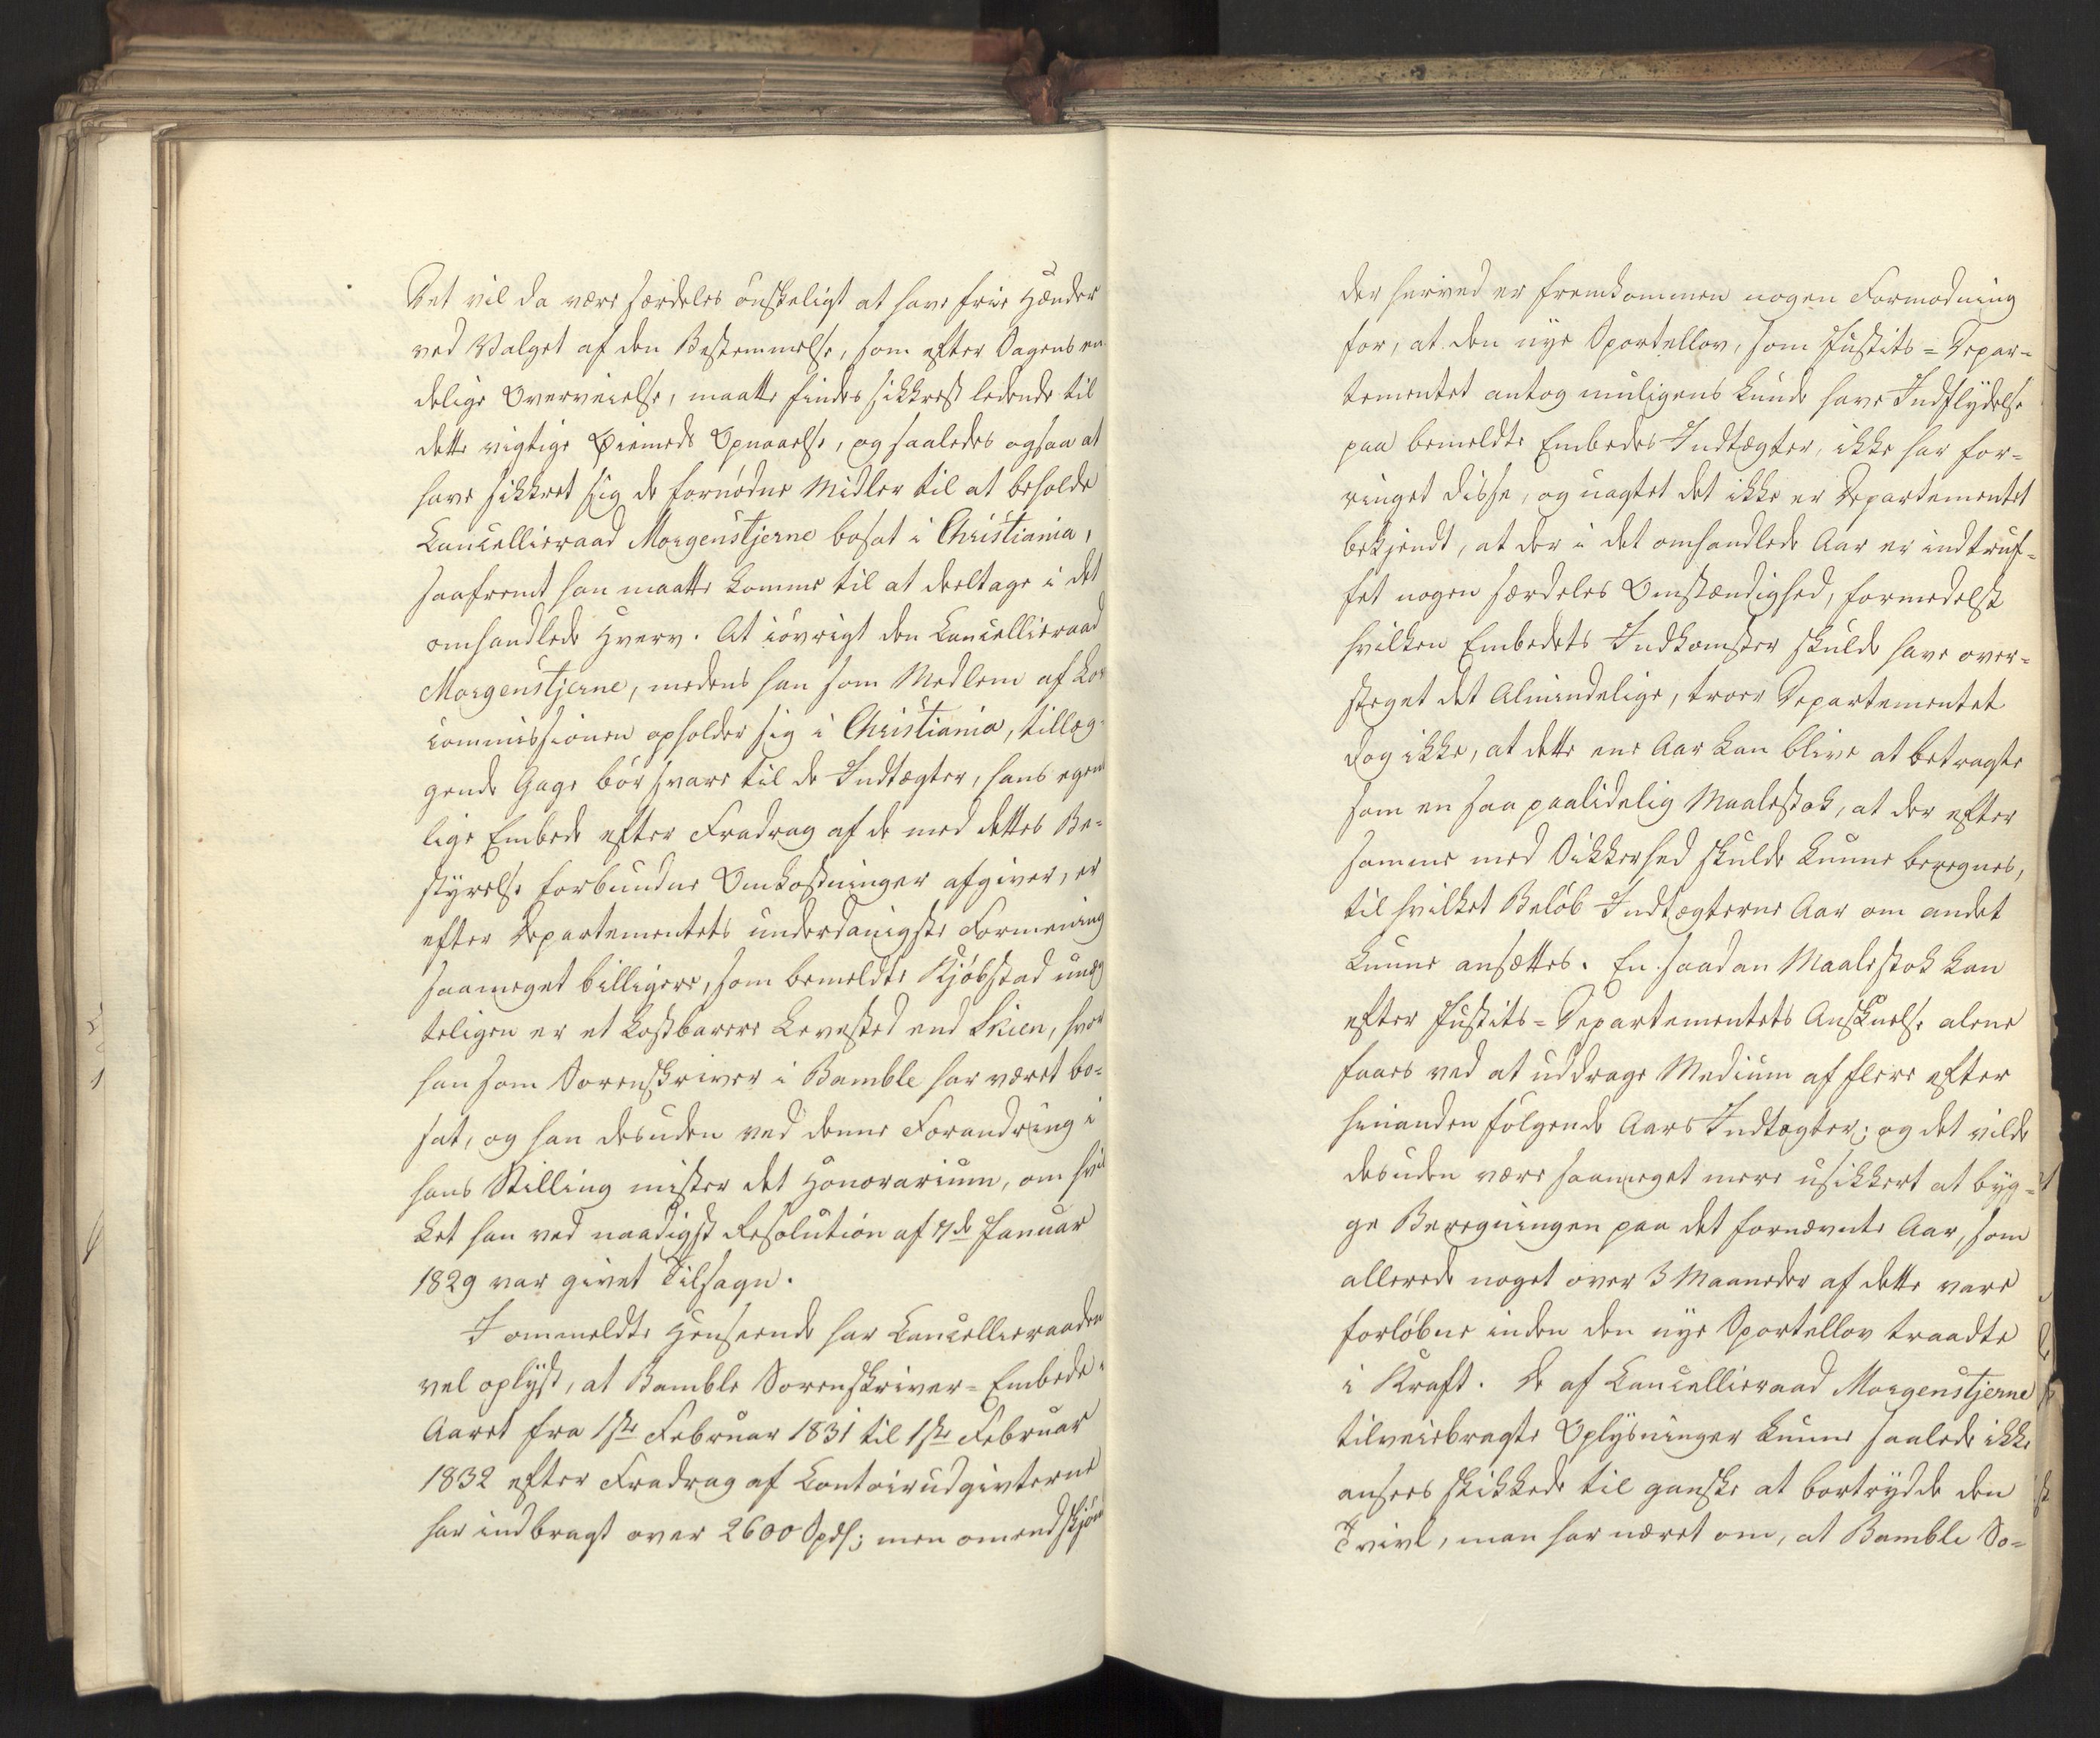 Det vil da være særdeles ønskeligt at have frie Hænder
ved Valget af den Bestemmelse, som efter Sagens en-
delige Overveielse, maatte findes sikkrest ledende til
dette vigtige Øiemeds Opnaaelse, og saaledes ogsaa at
have sikkret sig de fornødne Midler til at beholde
Cancellieraad Morgenstjerne bosat i Christiania,
saafremt han maatte komme til at deeltage i det
omhandlede Hverv. At iøvrigt den Cancellieraad
Morgenstjerne, medens han som Medlem af Lov
commissionen opholder sig i Christiania, tillæg-
gende Gage bør svare til de Indtægter, hans egent
lige Embede efter Fradrag af de med dettes Be-
styrelse forbundne Omkostninger afgiver, er
efter Departementets underdanigste Formening
saameget billigere, som bemeldte Kjøbstad unæg
teligen er et kostbarere Levested end Skien, hvor
han som Sorenskriver i Bamble har været bo-
sat, og han desuden ved denne Forandring i
hans Stilling mister det Honorarium, om hvil
ket han ved naadigst Resolution af 7de Januar
1829 var givet Tilsagn.
I ommeldte Henseende har Cancellieraaden
vel oplyst, at Bamble Sorenskriver-Embede i
Aaret fra 1ste Februar 1831 til 1ste Februar
1832 efter Fradrag af Contoirudgivterne
har indbragt over 2600 Spd; men omendskjøn
der herved er fremkommen nogen Formodning
for, at den nye Sportellov, som Justits-Depar-
tementet antog muligens kunde have Indflydelse
paa bemeldte Embedes Indtægter, ikke har for-
ringet disse, og uagtet det ikke er Departementet
bekjendt, at der i det omhandlede Aar er indtruf-
fet nogen særdeles Omstændighed, formedelst
hvilken Embedets Indkomster skulde have over-
steget det Almindelige, troer Departementet
dog ikke, at dette ene Aar kan blive at betragte
som en saa paalidelig Maalestok, at der efter
samme med Sikkerhed skulde kunne beregnes,
til hvilket Beløb Indtægterne Aar om andet
kunne ansættes. En saadan Maalestok kan
efter Justits-Departementets Anskuelse alene
faaes ved at uddrage Medium af flere efter
hinanden følgende Aars Indtægter; og det vilde
desuden være saameget mere usikkert at byg-
ge Beregningen paa det fornævnte Aar, som
allerede noget over 3 Maaneder af dette vare
forløbne inden den nye Sportellov traadte
i Kraft. De af Cancellieraad Morgenstjerne
tilveiebragte Oplysninger kunne saalede ikke
ansees skikkede til ganske at bortrydde den
Tvivl, man har næret om, at Bamble So-